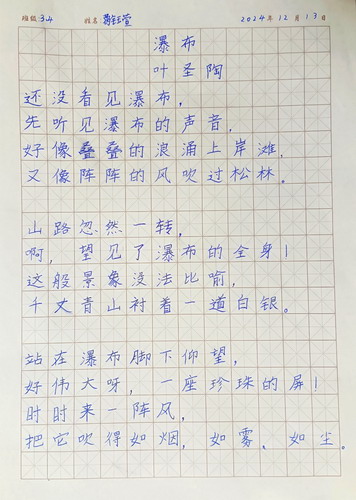 班级 3.4 姓名 2024年12月13日
瀑布
叶圣陶
还没看见瀑布，
先听见瀑布的声音，
好像叠叠的浪涌上岸滩，
又像阵阵的风吹过松林。
山路忽然一转，
啊，望见了瀑布的全身！
这般景象没法比喻，
千丈青山衬着一道白银。
站在瀑布脚下仰望，
好伟大呀，一座珍珠的屏！
时时来一阵风，
把它吹得如烟，如雾、如尘。